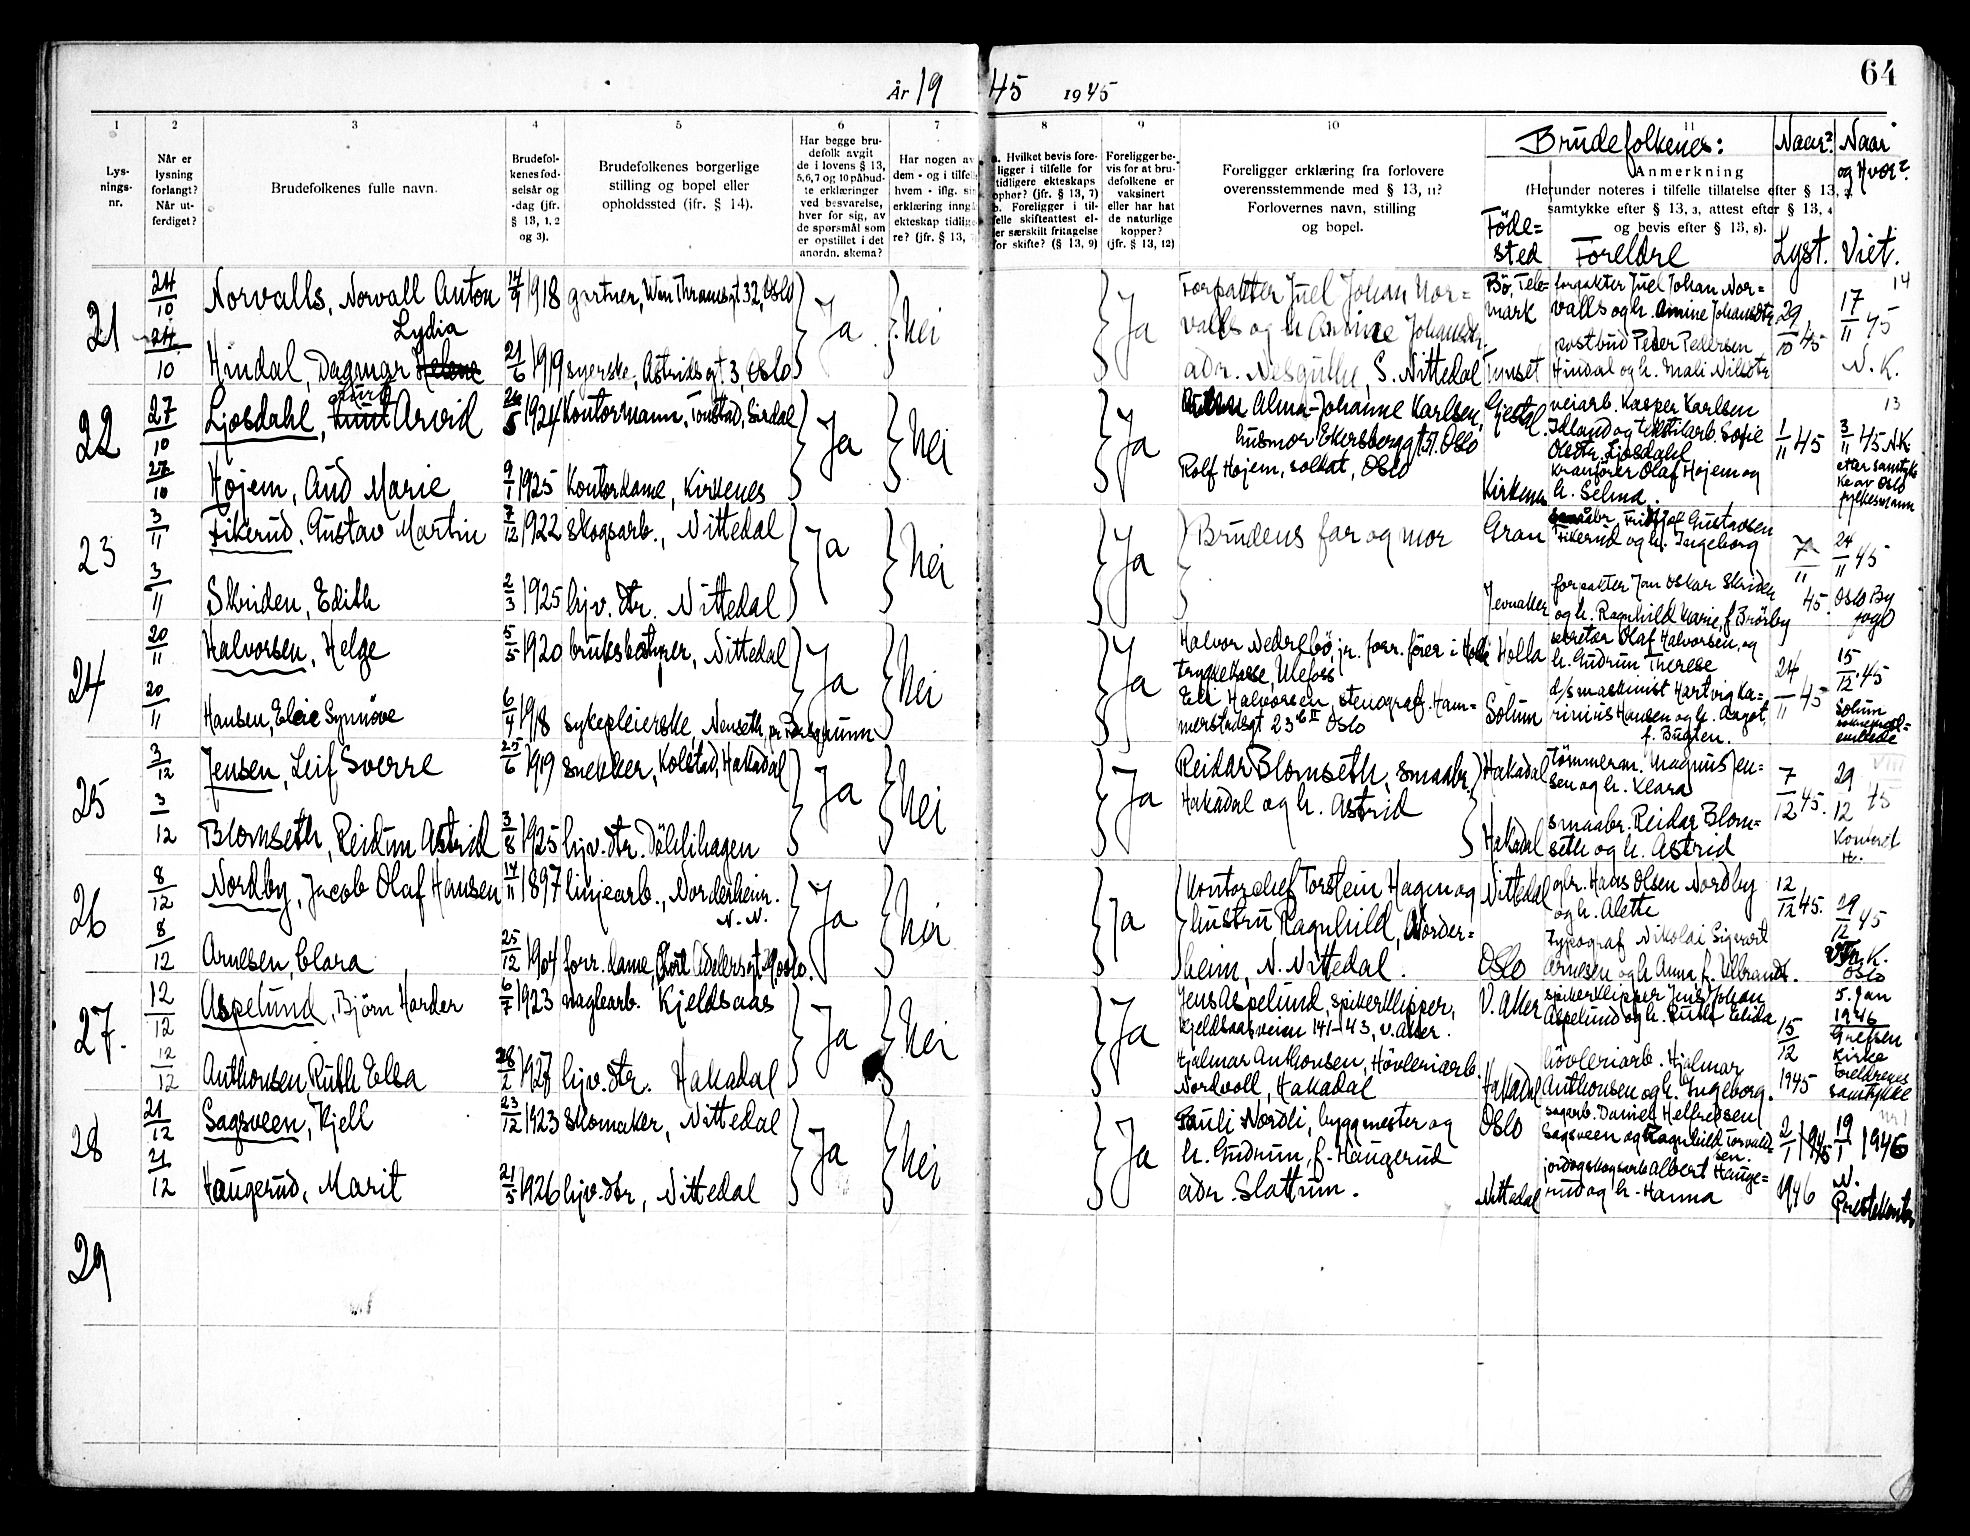 64
År 19 45 1945
1 2 3 4 5 6 7 8 9 10 11
Lys-
nings-
nr.
Når er
lysning
forlangt?
Når ut-
ferdiget?
Brudefolkenes fulle navn.
Brudefol-
kenes fød-
selsår og
-dag (jfr.
§ 13, 1, 2
og 3).
Brudefolkenes borgerlige
stilling og bopel eller
opholdssted (ifr. § 14).
Har begge bru-
defolk avgit
de i lovens § 13,
5, 6, 7 og 10 påbud-
te erklæringer
ved besvarelse,
hver for sig, av
de spørsmål som
er opstillet i det
anordn. skema?
Har nogen av
dem - og i tilfelle
hvem - iflg. sin
erklæring inngå
ekteskap tidlige
re? (jfr. § 13,
a. Hvilket bevis fore-
ligger i tilfelle for
tidligere ekteskaps
ophør? (jfr. § 13, 7)
b. Foreligger i til-
felle skifteattest el-
ler særskilt fritagelse
for skifte? (§ 13, 9)
Foreligger be-
vis for at bru-
defolkene er
vaksinert
eller har hat
de naturlige
kopper?
(jfr. § 13, 12)
Foreligger erklæring fra forlovere
overensstemmende med § 13, 11?
Forlovernes navn, stilling
og bopel.
Brudefolkenes:
Anmerkning
(Herunder noteres i tilfelle tillatelse efter § 13, 2
samtykke efter § 13, 3, attest efter § 13, 4
og bevis efter § 13, 8).
Föde-
sted
Foreldre
Naar?
Lyst.
Naar
og Hvor?
Viet.
21
24/10
24/10
Norvalls, Norvall Anton
Lydia
Hindal, Dagmar Helene
14/9 1918 gartner, Wm Thranesgt 32, Oslo
21/6 1919 syerske, Astridsgt. 3, Oslo
Ja
Nei
Ja
Forpakter Juel Johan Nor=
valls og h. Amine Johansdtr.
adr. Nesgutua, S. Nittedal
Bö, Tele-
mark
forpakter Juel Johan Nor=
valls og h. Amine Johansdtr
Tynset
postbud Peder Pedersen
Hindal og h. Mali Nilsdtr
29/10 45
14
17/11 45
N. K.
22
27/10
27/10
Ljosdahl, Knut Arvid
Højem, Aud Marie
26/5 1924 Kontormann, Tonstad, Sirdal
9/1 1925 Kontordame, Kirkenes
Ja
Nei
Ja
Alma-Johanne Karlsen,
husmor Ekersberggt. 51. Oslo
Rolf Højem, soldat, Oslo
Gjestal.
veiarb. Kasper Karlsen
Idland og tekstilarb. Sofie
Olsdtr. Ljosdahl
Kirkenes
Kranfører Olaf Højem og
h. Selma.
1/11 45
13
3/11 45 N.K.
etter samtyk
ke av Oslo
fylkesmann
23
3/11
3/11
Fikerud, Gustav Martin
Skriden, Edith
7/12 1922 skogsarb., Nittedal
2/3 1925 hjv. dtr. Nittedal
Ja
Nei
Ja
Brudens far og mor
Gran
smaabr. Fridtjof Gustavsen
Fikerud og h. Ingeborg
Jevnaker
forpakter Jan Oskar Skriden
og h. Ragnhild Marie, f. Brörby
7/11 45.
24/11 45
Oslo By
fogd
24
20/11
20/11
Halvorsen, Helge
Hansen, Elsie Synnöve
5/5 1920 bruksbestyrer, Nittedal
6/4 1918 sykepleierske, Nenseth, pr. Porsgrunn
Ja
Nei
Ja
Halvor Nedrebö, jr. forr. fører i Holla
trygdekasse, Ulefoss
Eli Halvorsen, stenograf, Ham=
merstadsgt 23 b II Oslo
Holla
sekretær Olaf Halvorsen, og
h. Gudrun Therese
Solum
d/s maskinist Hartvig Ka=
rinius Hansen og h. Aagot,
f. Bugten.
24/11 45
15/12. 45
Solum
25
3/12
3/12
Jensen, Leif Sverre
Blomseth, Reidun Astrid
25/6 1919 snekker, Kolstad, Hakadal
3/8 1925 hjv. dtr. Döhlihagen
Ja
Nei
Ja
Reidar Blomseth, smaabr.
Hakadal og h. Astrid
Hakadal
tömmerm. Magnus Jen=
sen og h. Klara
Hakadal
smaabr. Reidar Blom=
seth og h. Astrid
7/12 45.
29/12 45
26
8/12
8/12
Nordby, Jacob Olaf Hansen
Arnesen, Clara
14/11 1897 linjearb., Norderheim.
N. N.
25/12 1904 forr. dame, Cort Adelersgt. 29, Oslo.
Ja
Nei
Ja
Kontorchef Torstein Hagen og
hustru Ragnhild, Norder=
heim, N. Nittedal.
Nittedal
gbr. Hans Olsen Nordby
og h. Alette
Oslo
Typograf Nikolai Sigvart
Arnesen og h. Anna f. Ulbrandt.
12/12 45.
29/12 45
Oslo
27.
12/12
12/12
Aspelund, Björn Harder
Anthonsen Ruth Elsa
6/7 1923 naglearb. Kjeldsaas
28/2 1927 hjv. dtr. Hakadal
Ja
Nei
Ja
Jens Aspelund, spikerklipper,
Kjeldsaasveien 141-43, V. Aker.
Hjalmar Anthonsen, Hövleriarb.
Nordvoll, Hakadal
V. Aker
spikerklipper Jens Johan
Aspelund og h. Ruth Elida
Hakadal
hövleriarb. Hjalmar
Anthonsen og h. Ingeborg.
15/12
1945
5. Jan
1946
Grefsen
Kirke
foreldrenes
samtykke
28
21/12
21/12
Sagsveen, Kjell
Haugerud, Marit
23/12 1923 skomaker, Nittedal
21/5 1926 hjv. dtr, Nittedal
Ja
Nei
Ja
Pauli Nordli, byggmester og
h. Gudrun, f. Haugerud
adr. Slattum.
Oslo
sagarb. Daniel Helliesen
Sagsveen og Ragnhild Torvald-
sen.
Nittedal
jord og skogsarb Albert Hauge=
rud og h. Hanna
2/1
1946
nr 1
19/1 1946
N.
Prestekontor
29